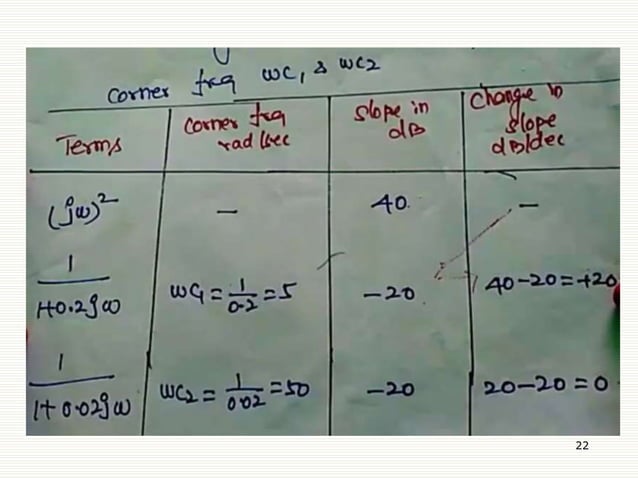 corner frq wc1 & wc2
Terms | corner frq rad/sec | slope in dB | change in slope dB/dec
(jω)² | – | 40 | –
1/(1+0.2jω) | wc1 = 1/0.2 = 5 | –20 | 40–20=+20
1/(1+0.02jω) | wc2 = 1/0.02 = 50 | –20 | 20–20=0
22